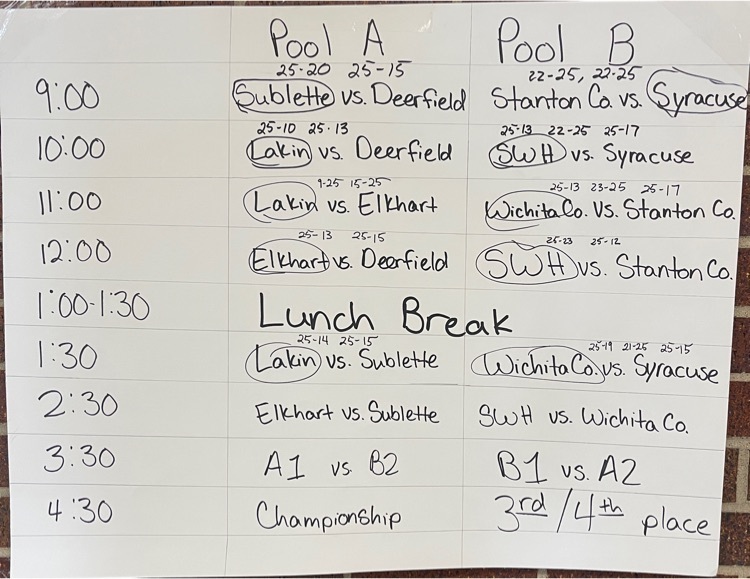 Pool A Pool B
25-20 25-15 22-25, 22-25
9:00 Sublette vs. Deerfield Stanton Co. vs. Syracuse
25-10 25-13 25-13 22-25 25-17
10:00 Lakin vs. Deerfield SWH vs. Syracuse
9-25 15-25 25-13 23-25 25-17
11:00 Lakin vs. Elkhart Wichita Co. vs. Stanton Co.
25-13 25-15 25-23 25-12
12:00 Elkhart vs. Deerfield SWH vs. Stanton Co.
1:00-1:30 Lunch Break
25-14 25-15 25-19 21-25 25-15
1:30 Lakin vs. Sublette Wichita Co. vs. Syracuse
2:30 Elkhart vs. Sublette SWH vs. Wichita Co.
3:30 A1 vs. B2 B1 vs. A2
4:30 Championship 3rd/4th place